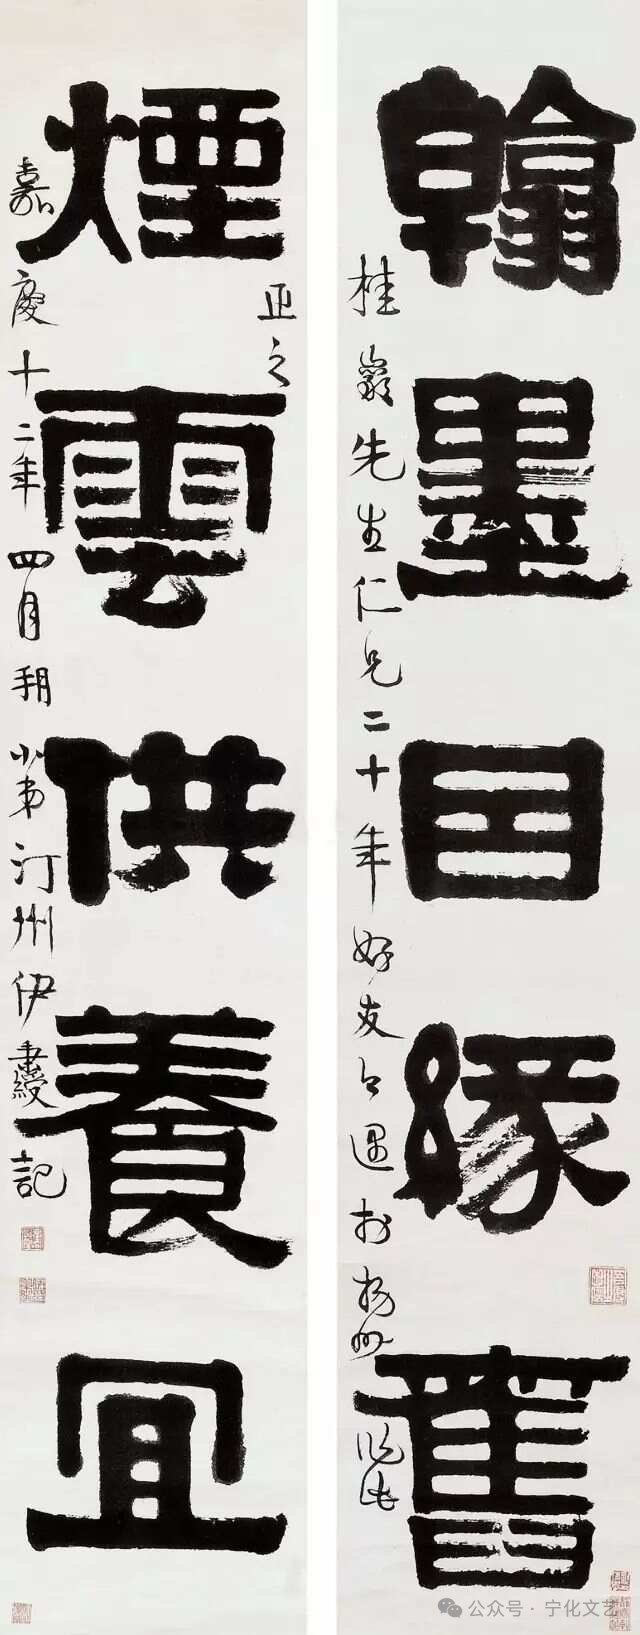 翰墨因緣舊
桂巖先生仁兄二十年好友遇於揚州此
煙雲供養宜
正之
嘉慶十二年四月朔小弟汀州伊秉綬記
公众号 · 宁化文艺